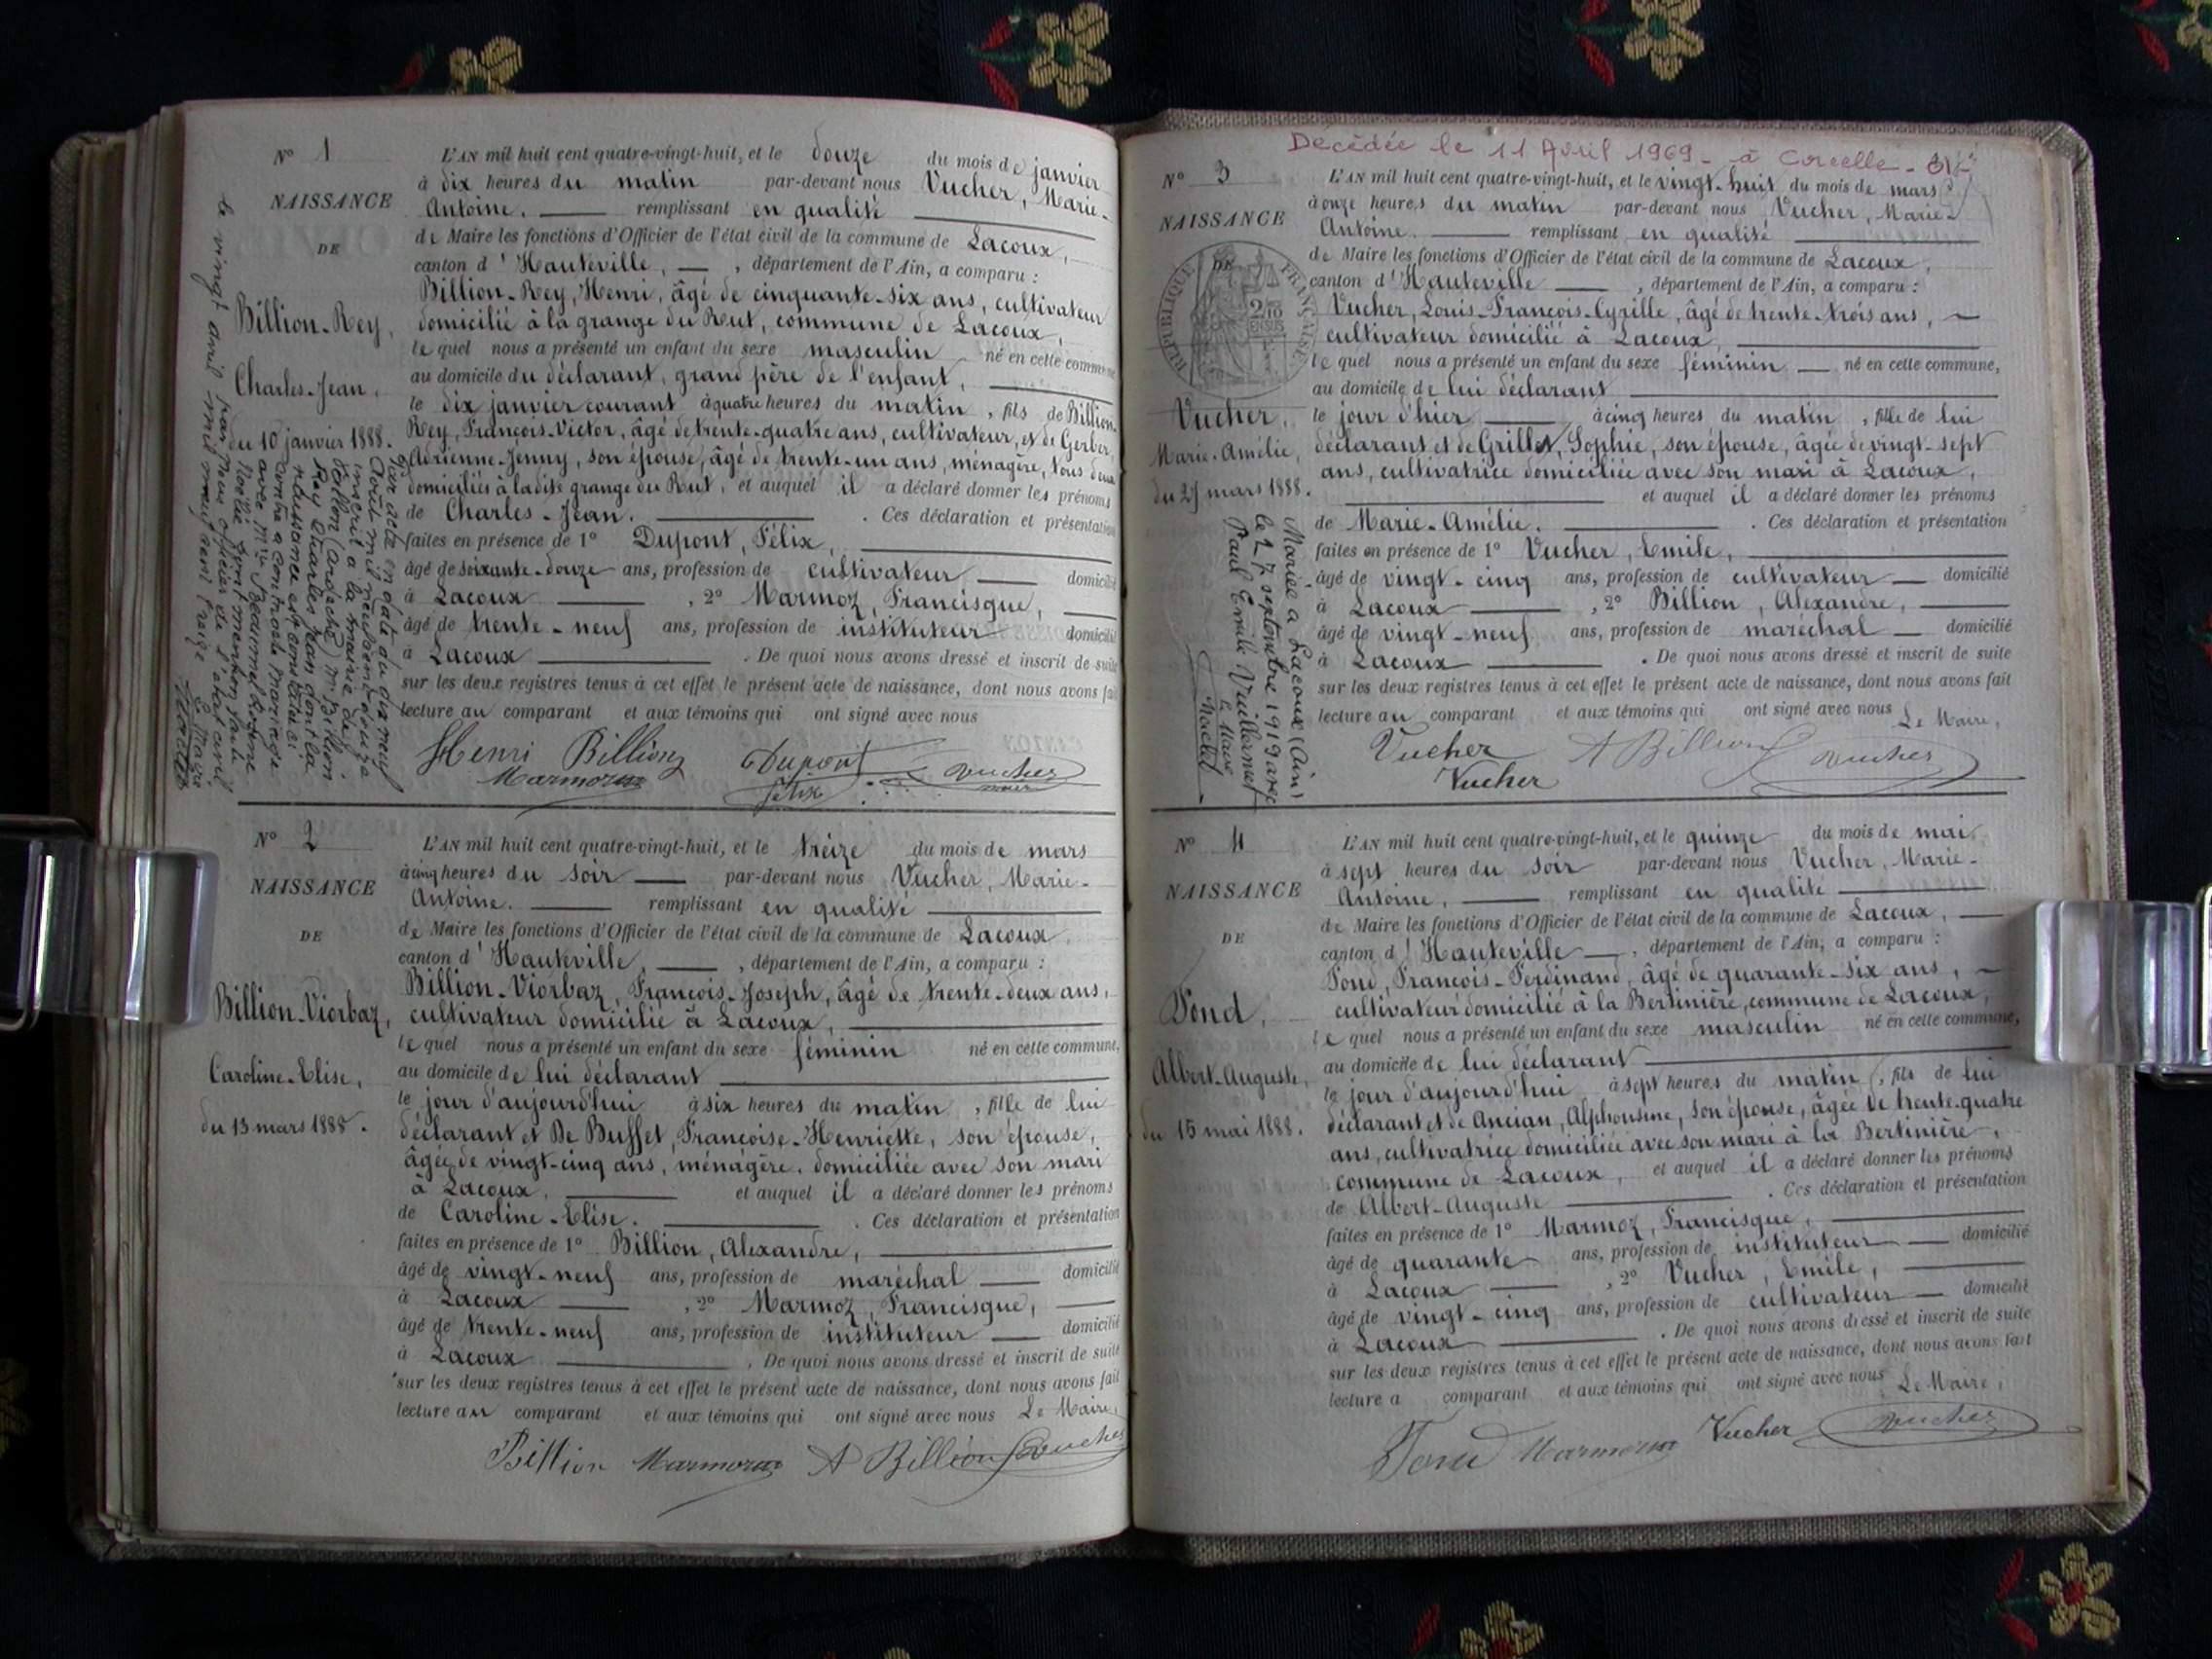 N° 1
NAISSANCE
DE
Billion-Rey,
Charles-Jean,
du 10 janvier 1888.
L'AN mil huit cent quatre-vingt-huit, et le douze du mois de janvier
à dix heures du matin par-devant nous Vucher, Marie-
Antoine. remplissant en qualité
de Maire les fonctions d'Officier de l'état civil de la commune de Lacoux,
canton d'Hauteville, , département de l'Ain, a comparu :
Billion-Rey, Henri, âgé de cinquante-six ans, cultivateur
domicilié à la grange du Rut, commune de Lacoux,
lequel nous a présenté un enfant du sexe masculin né en cette commune
au domicile du déclarant, grand père de l'enfant,
le dix janvier courant à quatre heures du matin, fils de Billion-
Rey, François-Victor, âgé de trente-quatre ans, cultivateur, et de Gerber,
Adrienne-Jenny, son épouse, âgé de trente-un ans, ménagère, tous deux
domiciliés à la dite grange du Rut, et auquel il a déclaré donner les prénoms
de Charles-Jean. . Ces déclaration et présentation
faites en présence de 1° Dupont, Félix,
âgé de soixante-douze ans, profession de cultivateur domicilié
à Lacoux , 2° Marmoz, Francisque,
âgé de trente-neuf ans, profession de instituteur domicilié
à Lacoux . De quoi nous avons dressé et inscrit de suite
sur les deux registres tenus à cet effet le présent acte de naissance, dont nous avons fait
lecture au comparant et aux témoins qui ont signé avec nous
Henri Billion Dupont Vucher
Marmoz félix maire
Par acte en date du dix neuf
Avril mil neuf cent douze
inscrit à la mairie de
(Ardèche) Mr Billion
Rey Charles Jean dont la
naissance est constatée ci
contre a contracté mariage
avec Mlle
dont mention faite
par nous officier de l'état civil
le vingt avril mil neuf cent treize
Le Maire
N° 2
NAISSANCE
DE
Billion-Viorbaz,
Caroline-Elise,
du 13 mars 1888.
L'AN mil huit cent quatre-vingt-huit, et le treize du mois de mars
à cinq heures du soir par-devant nous Vucher, Marie-
Antoine. remplissant en qualité
de Maire les fonctions d'Officier de l'état civil de la commune de Lacoux,
canton d'Hauteville, , département de l'Ain, a comparu :
Billion-Viorbaz, François-Joseph, âgé de trente-deux ans,
cultivateur domicilié à Lacoux,
lequel nous a présenté un enfant du sexe féminin né en cette commune,
au domicile de lui déclarant
le jour d'aujourd'hui à six heures du matin, fille de lui
déclarant et De Buffet, Françoise-Henriette, son épouse,
âgée de vingt-cinq ans, ménagère, domiciliée avec son mari
à Lacoux, et auquel il a déclaré donner les prénoms
de Caroline-Elise. . Ces déclaration et présentation
faites en présence de 1° Billion, Alexandre,
âgé de vingt-neuf ans, profession de maréchal domicilié
à Lacoux , 2° Marmoz, Francisque,
âgé de trente-neuf ans, profession de instituteur domicilié
à Lacoux . De quoi nous avons dressé et inscrit de suite
sur les deux registres tenus à cet effet le présent acte de naissance, dont nous avons fait
lecture au comparant et aux témoins qui ont signé avec nous Le Maire,
Billion Marmoz A Billion Vucher
Décédée le 11 Avril 1969 - à Corcelle -
N° 3
NAISSANCE
DE
RÉPUBLIQUE FRANÇAISE
2/10
EN SUS
Vucher,
Marie-Amélie,
du 27 mars 1888.
L'AN mil huit cent quatre-vingt-huit, et le vingt-huit du mois de mars
à onze heures du matin par-devant nous Vucher, Marie-
Antoine. remplissant en qualité
de Maire les fonctions d'Officier de l'état civil de la commune de Lacoux,
canton d'Hauteville , département de l'Ain, a comparu :
Vucher, Louis-François-Cyrille, âgé de trente-trois ans,
cultivateur domicilié à Lacoux,
lequel nous a présenté un enfant du sexe féminin né en cette commune,
au domicile de lui déclarant
le jour d'hier à cinq heures du matin, fille de lui
déclarant et de Grillet, Sophie, son épouse, âgée de vingt-sept
ans, cultivatrice domiciliée avec son mari à Lacoux,
et auquel il a déclaré donner les prénoms
de Marie-Amélie. . Ces déclaration et présentation
faites en présence de 1° Vucher, Emile,
âgé de vingt-cinq ans, profession de cultivateur domicilié
à Lacoux , 2° Billion, Alexandre,
âgé de vingt-neuf ans, profession de maréchal domicilié
à Lacoux . De quoi nous avons dressé et inscrit de suite
sur les deux registres tenus à cet effet le présent acte de naissance, dont nous avons fait
lecture au comparant et aux témoins qui ont signé avec nous Le Maire,
Vucher A Billion Vucher
Vucher
Mariée à Lacoux (Ain)
le 27 septembre 1919 avec
Paul Emile Vuillermet
Le Maire
N° 4
NAISSANCE
DE
Fond,
Albert-Auguste,
du 15 mai 1888.
L'AN mil huit cent quatre-vingt-huit, et le quinze du mois de mai
à sept heures du soir par-devant nous Vucher, Marie-
Antoine, remplissant en qualité
de Maire les fonctions d'Officier de l'état civil de la commune de Lacoux,
canton d'Hauteville , département de l'Ain, a comparu :
Fond, François-Ferdinand, âgé de quarante-six ans,
cultivateur domicilié à la Bertinière, commune de Lacoux,
lequel nous a présenté un enfant du sexe masculin né en cette commune,
au domicile de lui déclarant
le jour d'aujourd'hui à sept heures du matin, fils de lui
déclarant et de Ancian, Alphonsine, son épouse, âgée de trente-quatre
ans, cultivatrice domiciliée avec son mari à la Bertinière,
commune de Lacoux, et auquel il a déclaré donner les prénoms
de Albert-Auguste . Ces déclaration et présentation
faites en présence de 1° Marmoz, Francisque,
âgé de quarante ans, profession de instituteur domicilié
à Lacoux , 2° Vucher, Emile,
âgé de vingt-cinq ans, profession de cultivateur domicilié
à Lacoux . De quoi nous avons dressé et inscrit de suite
sur les deux registres tenus à cet effet le présent acte de naissance, dont nous avons fait
lecture a comparant et aux témoins qui ont signé avec nous Le Maire,
Fond Marmoz Vucher Vucher